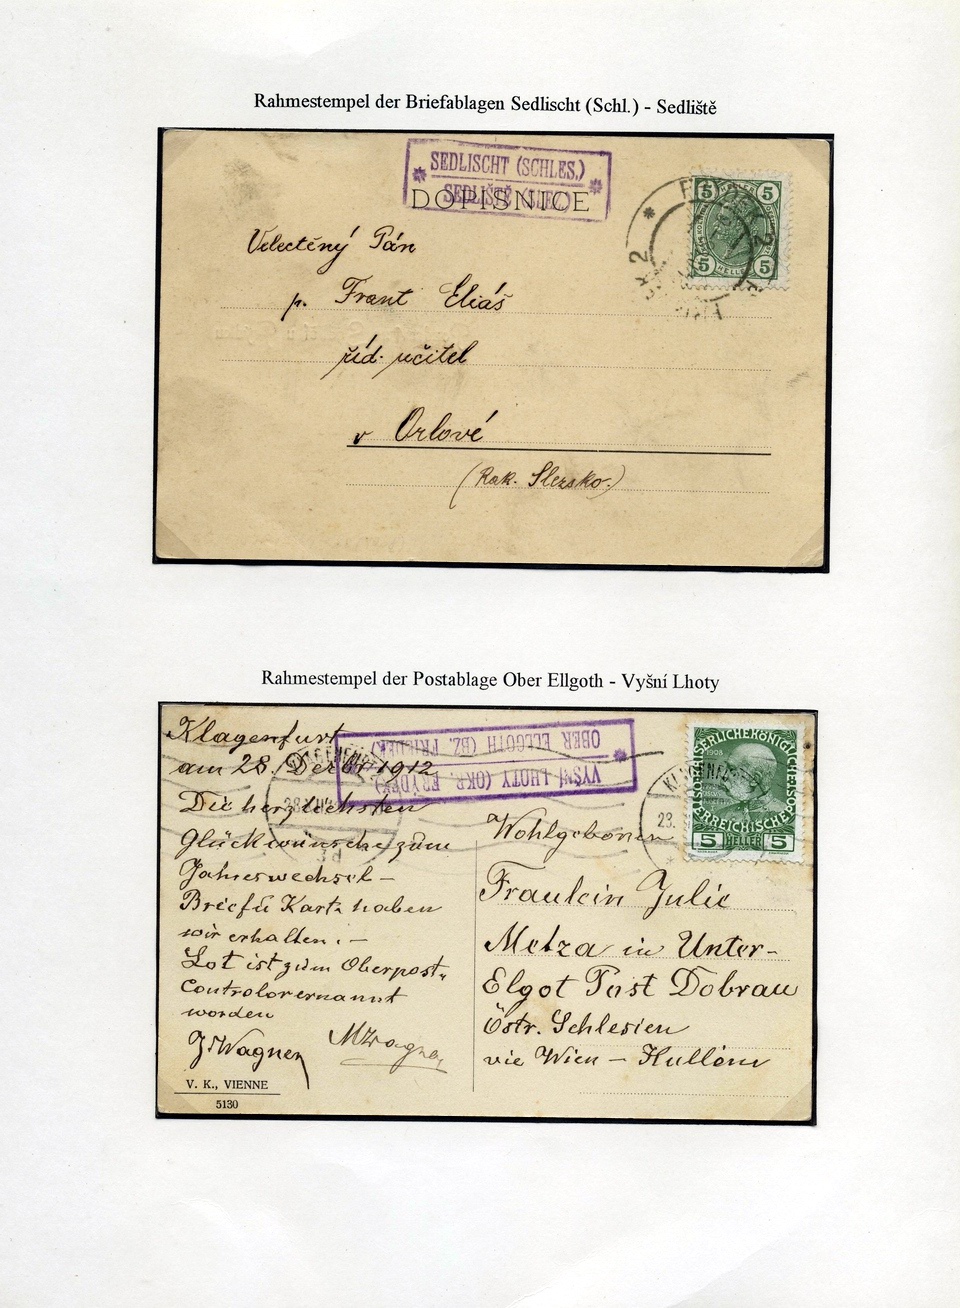 Rahmestempel der Briefablagen Sedlischt (Schl.) - Sedliště
SEDLISCHT (SCHLES.)
SEDLIŠTĚ (SLEZ.)
DOPISNICE
5 5
5 HELLER 5
Velectěný Pán
p. Frant Eliáš
říd. učitel
v Orlové
(Rak. Slezsko.)
Rahmestempel der Postablage Ober Ellgoth - Vyšní Lhoty
VYŠNÍ LHOTY (OKR. FRÝDEK)
OBER ELLGOTH (BZ. FRIEDEK)
1908
5 HELLER 5
Klagenfurt
am 28. Dec. 1912
Die herzlichsten
Glückwünsche zum
Jahreswechsel –
Brief u Karte haben
wir erhalten. –
Lot ist zum Oberpost-
controlor ernannt
worden
J. Wagner
MWagner
V. K., VIENNE
5130
Wohlgeboren
Fraulein Julie
Metza in Unter-
Elgot Post Dobrau
Östr. Schlesien
vie Wien –